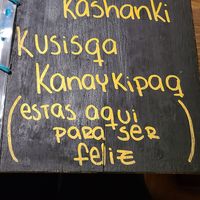 Kashanki
Kusisqa
Kanaykipaq
(estas aqui
para ser
feliz)